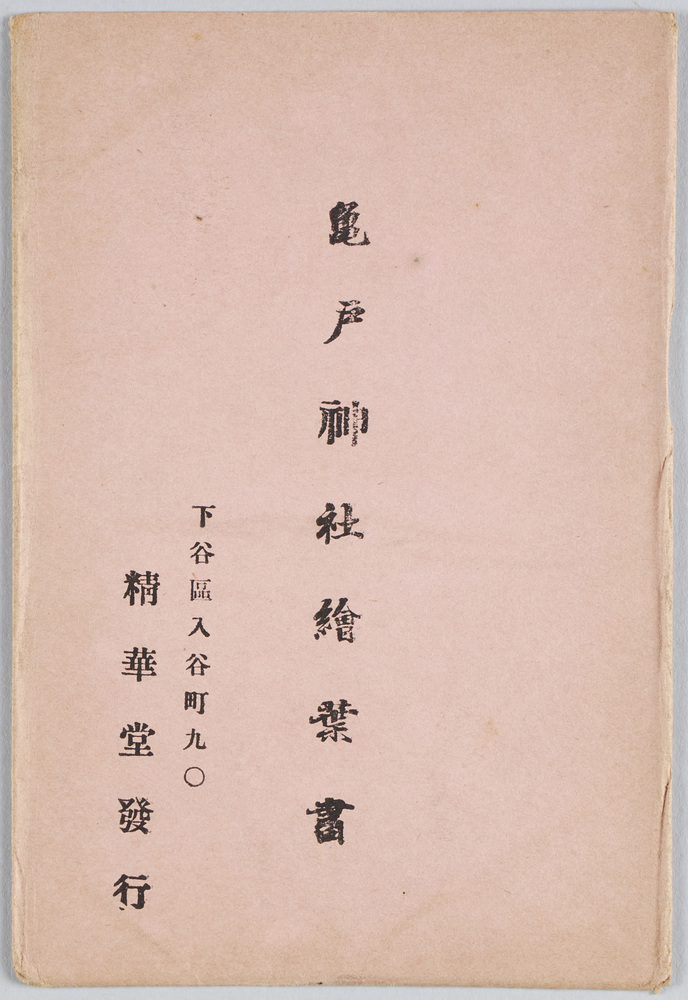 亀戸神社繪葉書
下谷區入谷町九〇
精華堂發行